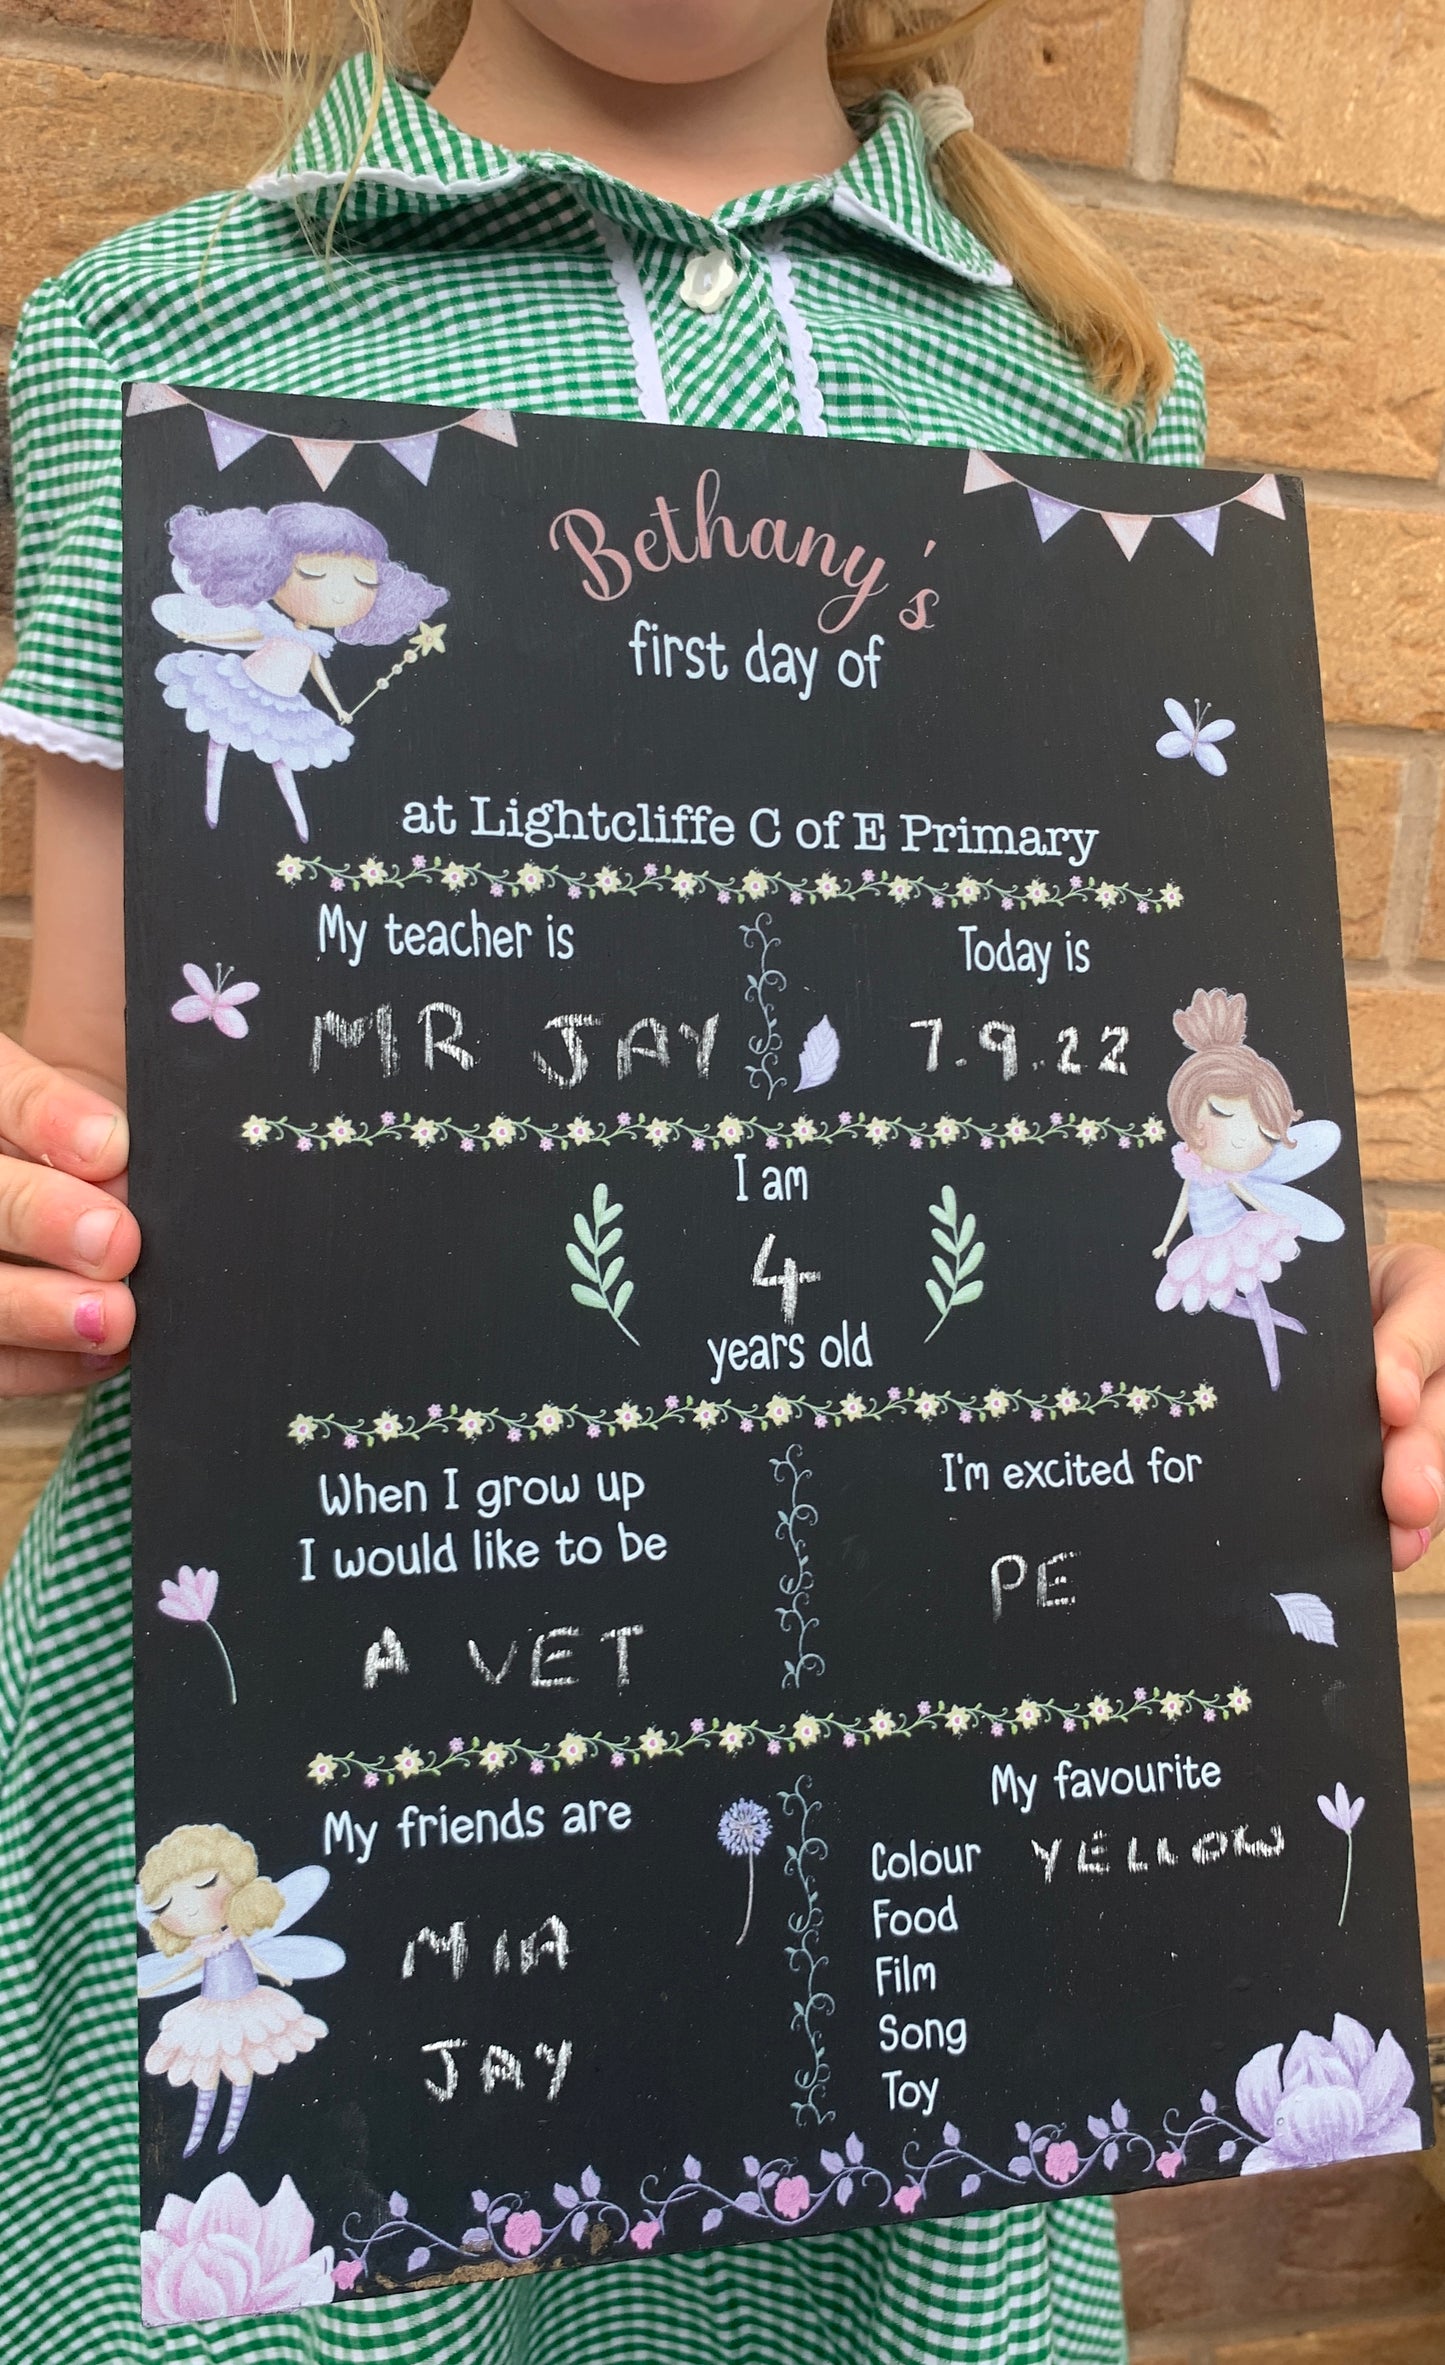 Bethany's
first day of
at Lightcliffe C of E Primary
My teacher is
MR JAY
Today is
7.9.22
I am
4
years old
When I grow up
I would like to be
A VET
I'm excited for
PE
My friends are
MIA
JAY
My favourite
Colour YELLOW
Food
Film
Song
Toy